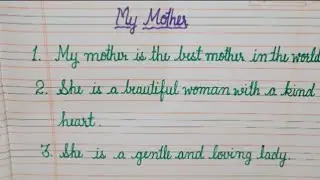 My Mother
1. My mother is the best mother in the world
2. She is a beautiful woman with a kind
heart.
3. She is a gentle and loving lady.